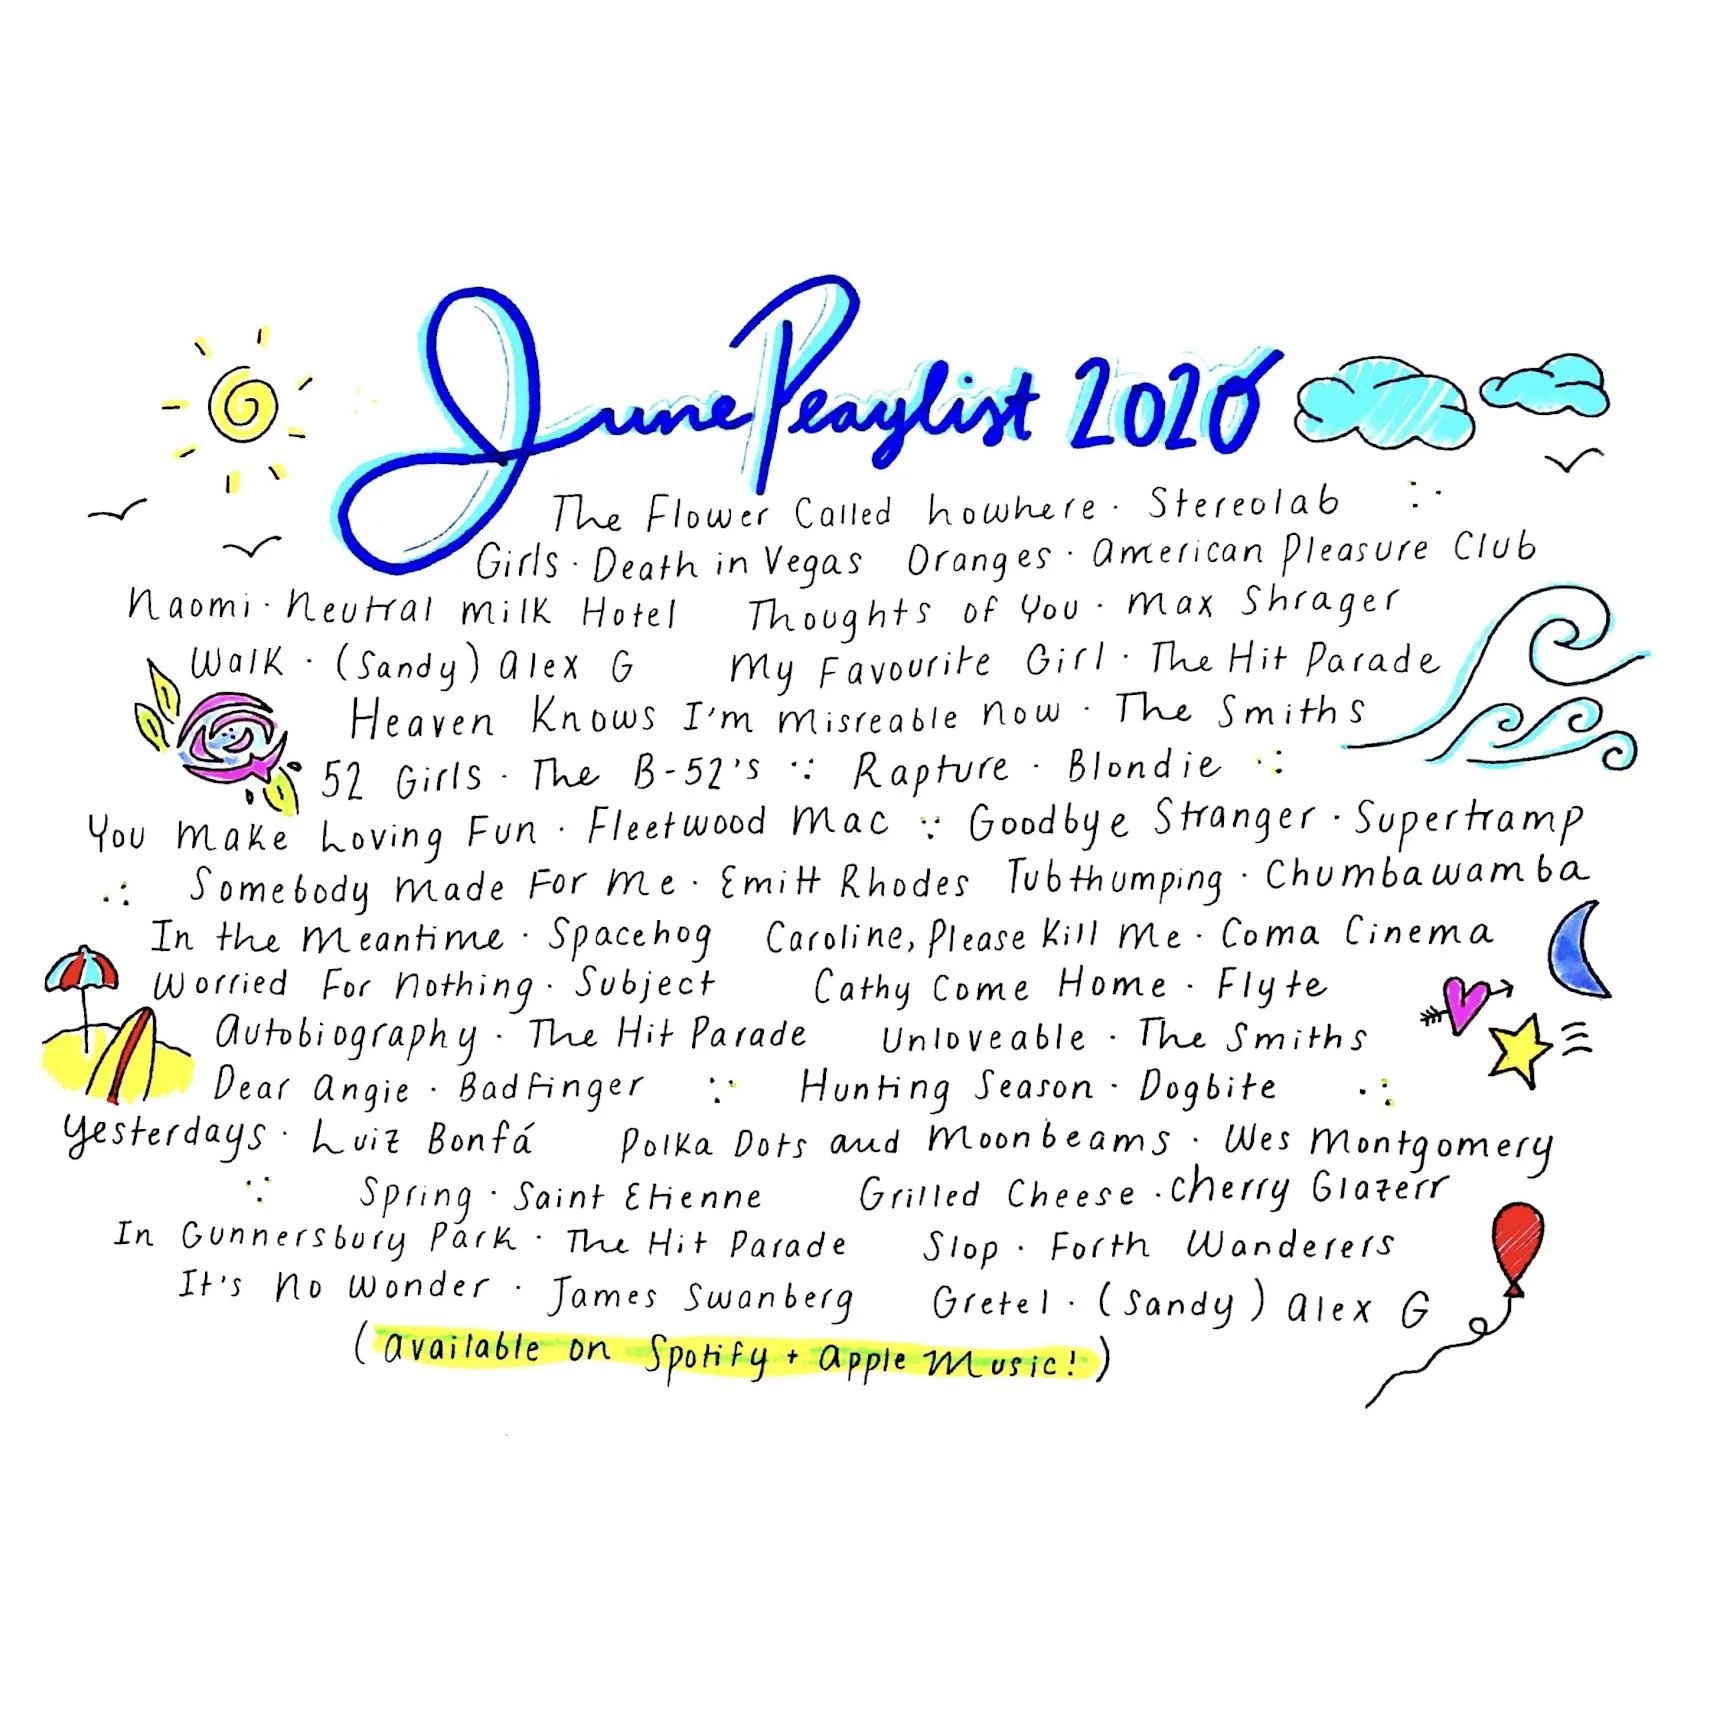 June Playlist 2020
The Flower Called Nowhere · Stereolab
Girls · Death in Vegas Oranges · American Pleasure Club
Naomi · Neutral Milk Hotel Thoughts of You · Max Shrager
Walk · (Sandy) Alex G My Favourite Girl · The Hit Parade
Heaven Knows I'm Misreable Now · The Smiths
52 Girls · The B-52's Rapture · Blondie
You Make Loving Fun · Fleetwood Mac Goodbye Stranger · Supertramp
Somebody Made For Me · Emitt Rhodes Tubthumping · Chumbawamba
In the Meantime · Spacehog Caroline, Please Kill Me · Coma Cinema
Worried For Nothing · Subject Cathy Come Home · Flyte
Autobiography · The Hit Parade Unloveable · The Smiths
Dear Angie · Badfinger Hunting Season · Dogbite
Yesterdays · Luiz Bonfá Polka Dots and Moonbeams · Wes Montgomery
Spring · Saint Etienne Grilled Cheese · Cherry Glazerr
In Gunnersbury Park · The Hit Parade Slop · Forth Wanderers
It's No Wonder · James Swanberg Gretel · (Sandy) Alex G
(Available on Spotify + Apple Music!)